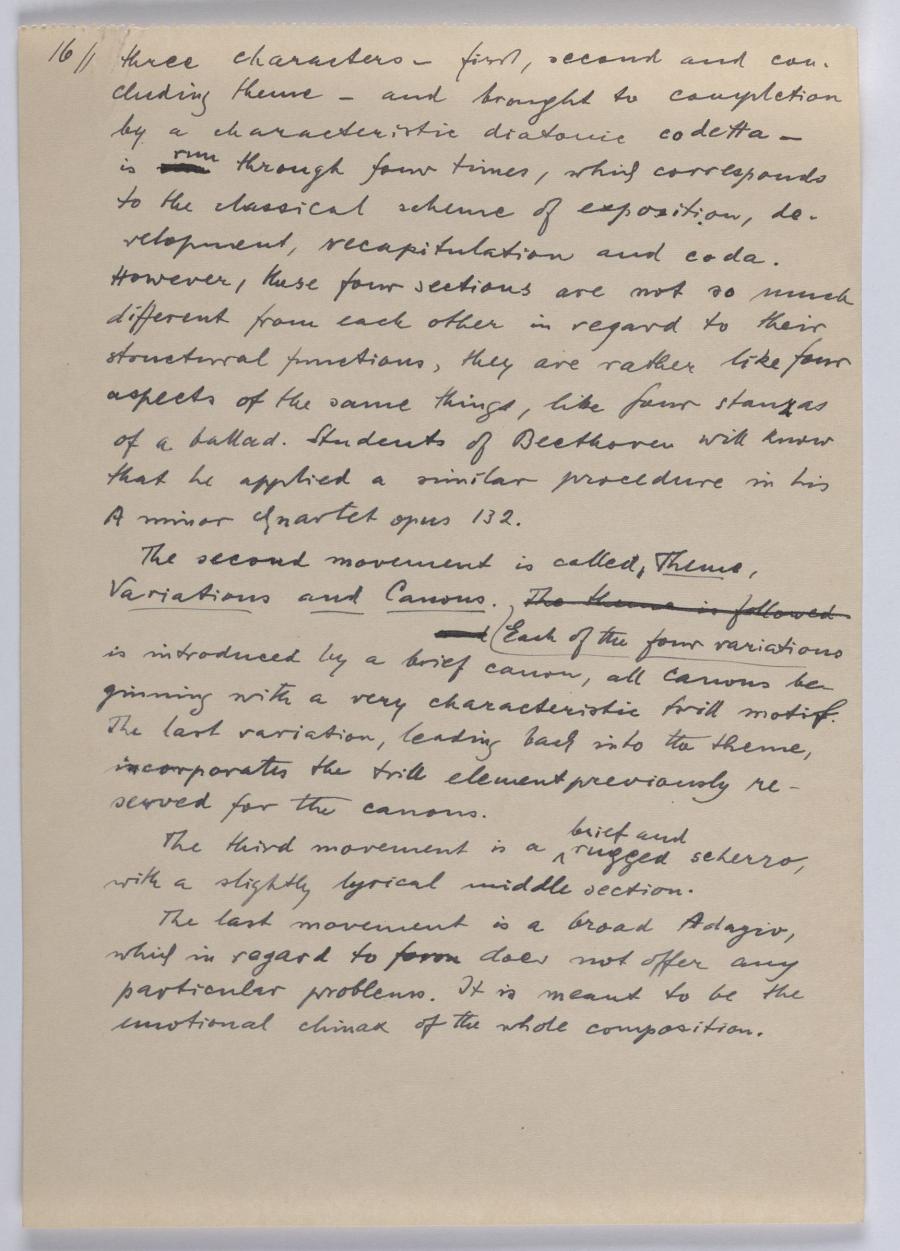 16 // three characters – first, second and con-
cluding theme – and brought to completion
by a characteristic diatonic codetta –
is run through four times, which corresponds
to the classical scheme of exposition, de-
velopment, recapitulation and coda.
However, these four sections are not so much
different from each other in regard to their
structural functions, they are rather like four
aspects of the same things, like four stanzas
of a ballad. Students of Beethoven will know
that he applied a similar procedure in his
A minor Quartet opus 132.
The second movement is called, Theme,
Variations and Canons. The theme is followed
and Each of the four variations
is introduced by a brief canon, all canons be-
ginning with a very characteristic trill motif.
The last variation, leading back into the theme,
incorporates the trill element previously re-
served for the canons.
The third movement is a brief and rugged scherzo,
with a slightly lyrical middle section.
The last movement is a broad Adagio,
which in regard to form does not offer any
particular problems. It is meant to be the
emotional climax of the whole composition.